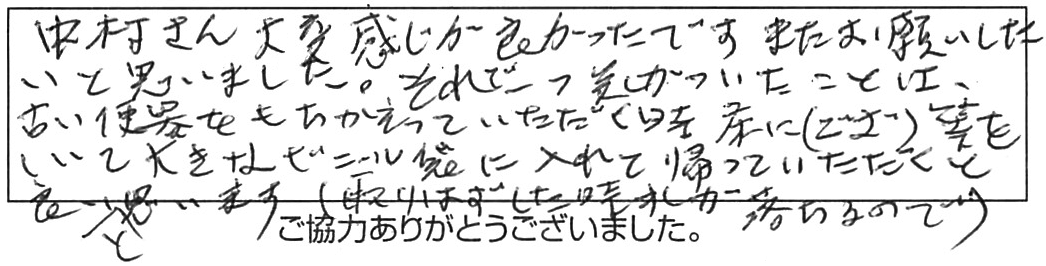 中村さん大変感じが良かったですまたお願いした
いと思いました。それで一つ気がついたことは、
古い便器をもちかえっていただく時床に(ござ)等を
しいて大きなビニール袋に入れて帰っていただくと
良いと思います(取りはずした時水が落ちるので)
ご協力ありがとうございました。